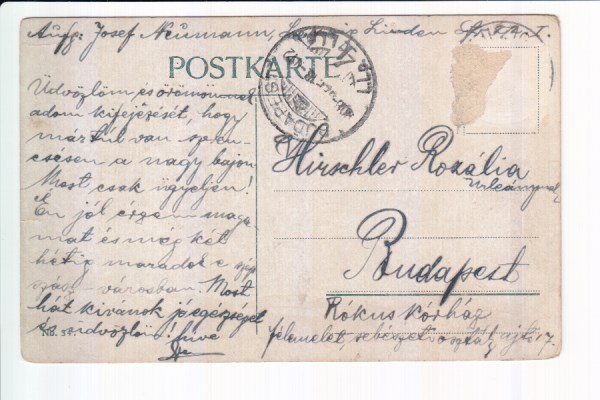 Aufg: Josef Neumann, Linden Str. I.
POSTKARTE
BUDAPEST
Üdvözlöm és örömömnek
adom kifejezését, hogy
már túl van szeren-
csésen a nagy bajon
Most csak ügyeljen!
Én jól érzem maga-
mat és még két
hétig maradok e szép
városban. Most
hát kivánok jó egészséget
és üdvözlöm! hive
No.
Hirschler Rozália
urleánynak
Budapest
Rókus kórház
félemelet, sebészeti osztály ajtó 17.